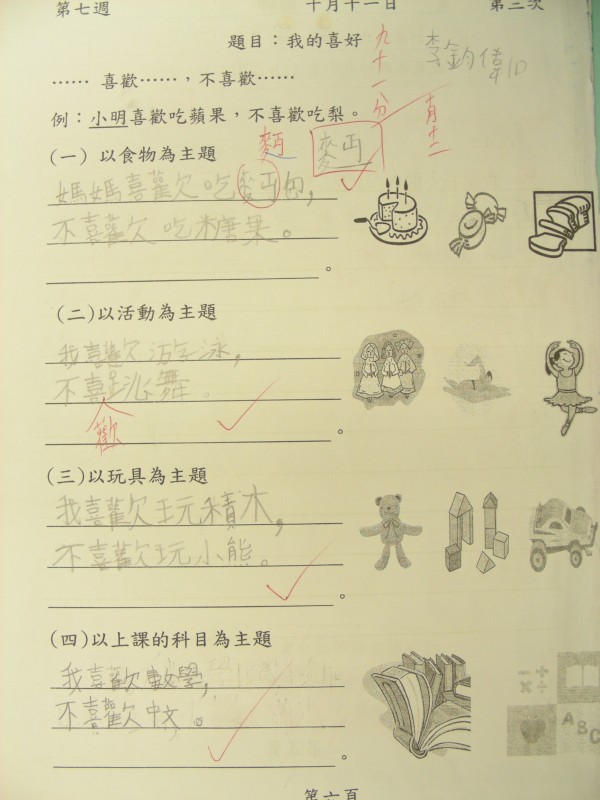 第七週 十月十一日 第三次
題目：我的喜好 九十八分 李鈞偉
…… 喜歡……，不喜歡……
例：小明喜歡吃蘋果，不喜歡吃梨。 十月十二
麪
(一) 以食物為主題
媽媽喜歡吃麪包，
不喜歡吃糖果。
。
(二)以活動為主題
我喜歡游泳，
不喜跳舞。
歡
。
(三)以玩具為主題
我喜歡玩積木，
不喜歡玩小熊。
。
(四)以上課的科目為主題
我喜歡數學，
不喜歡中文。
。
ABC
第六頁